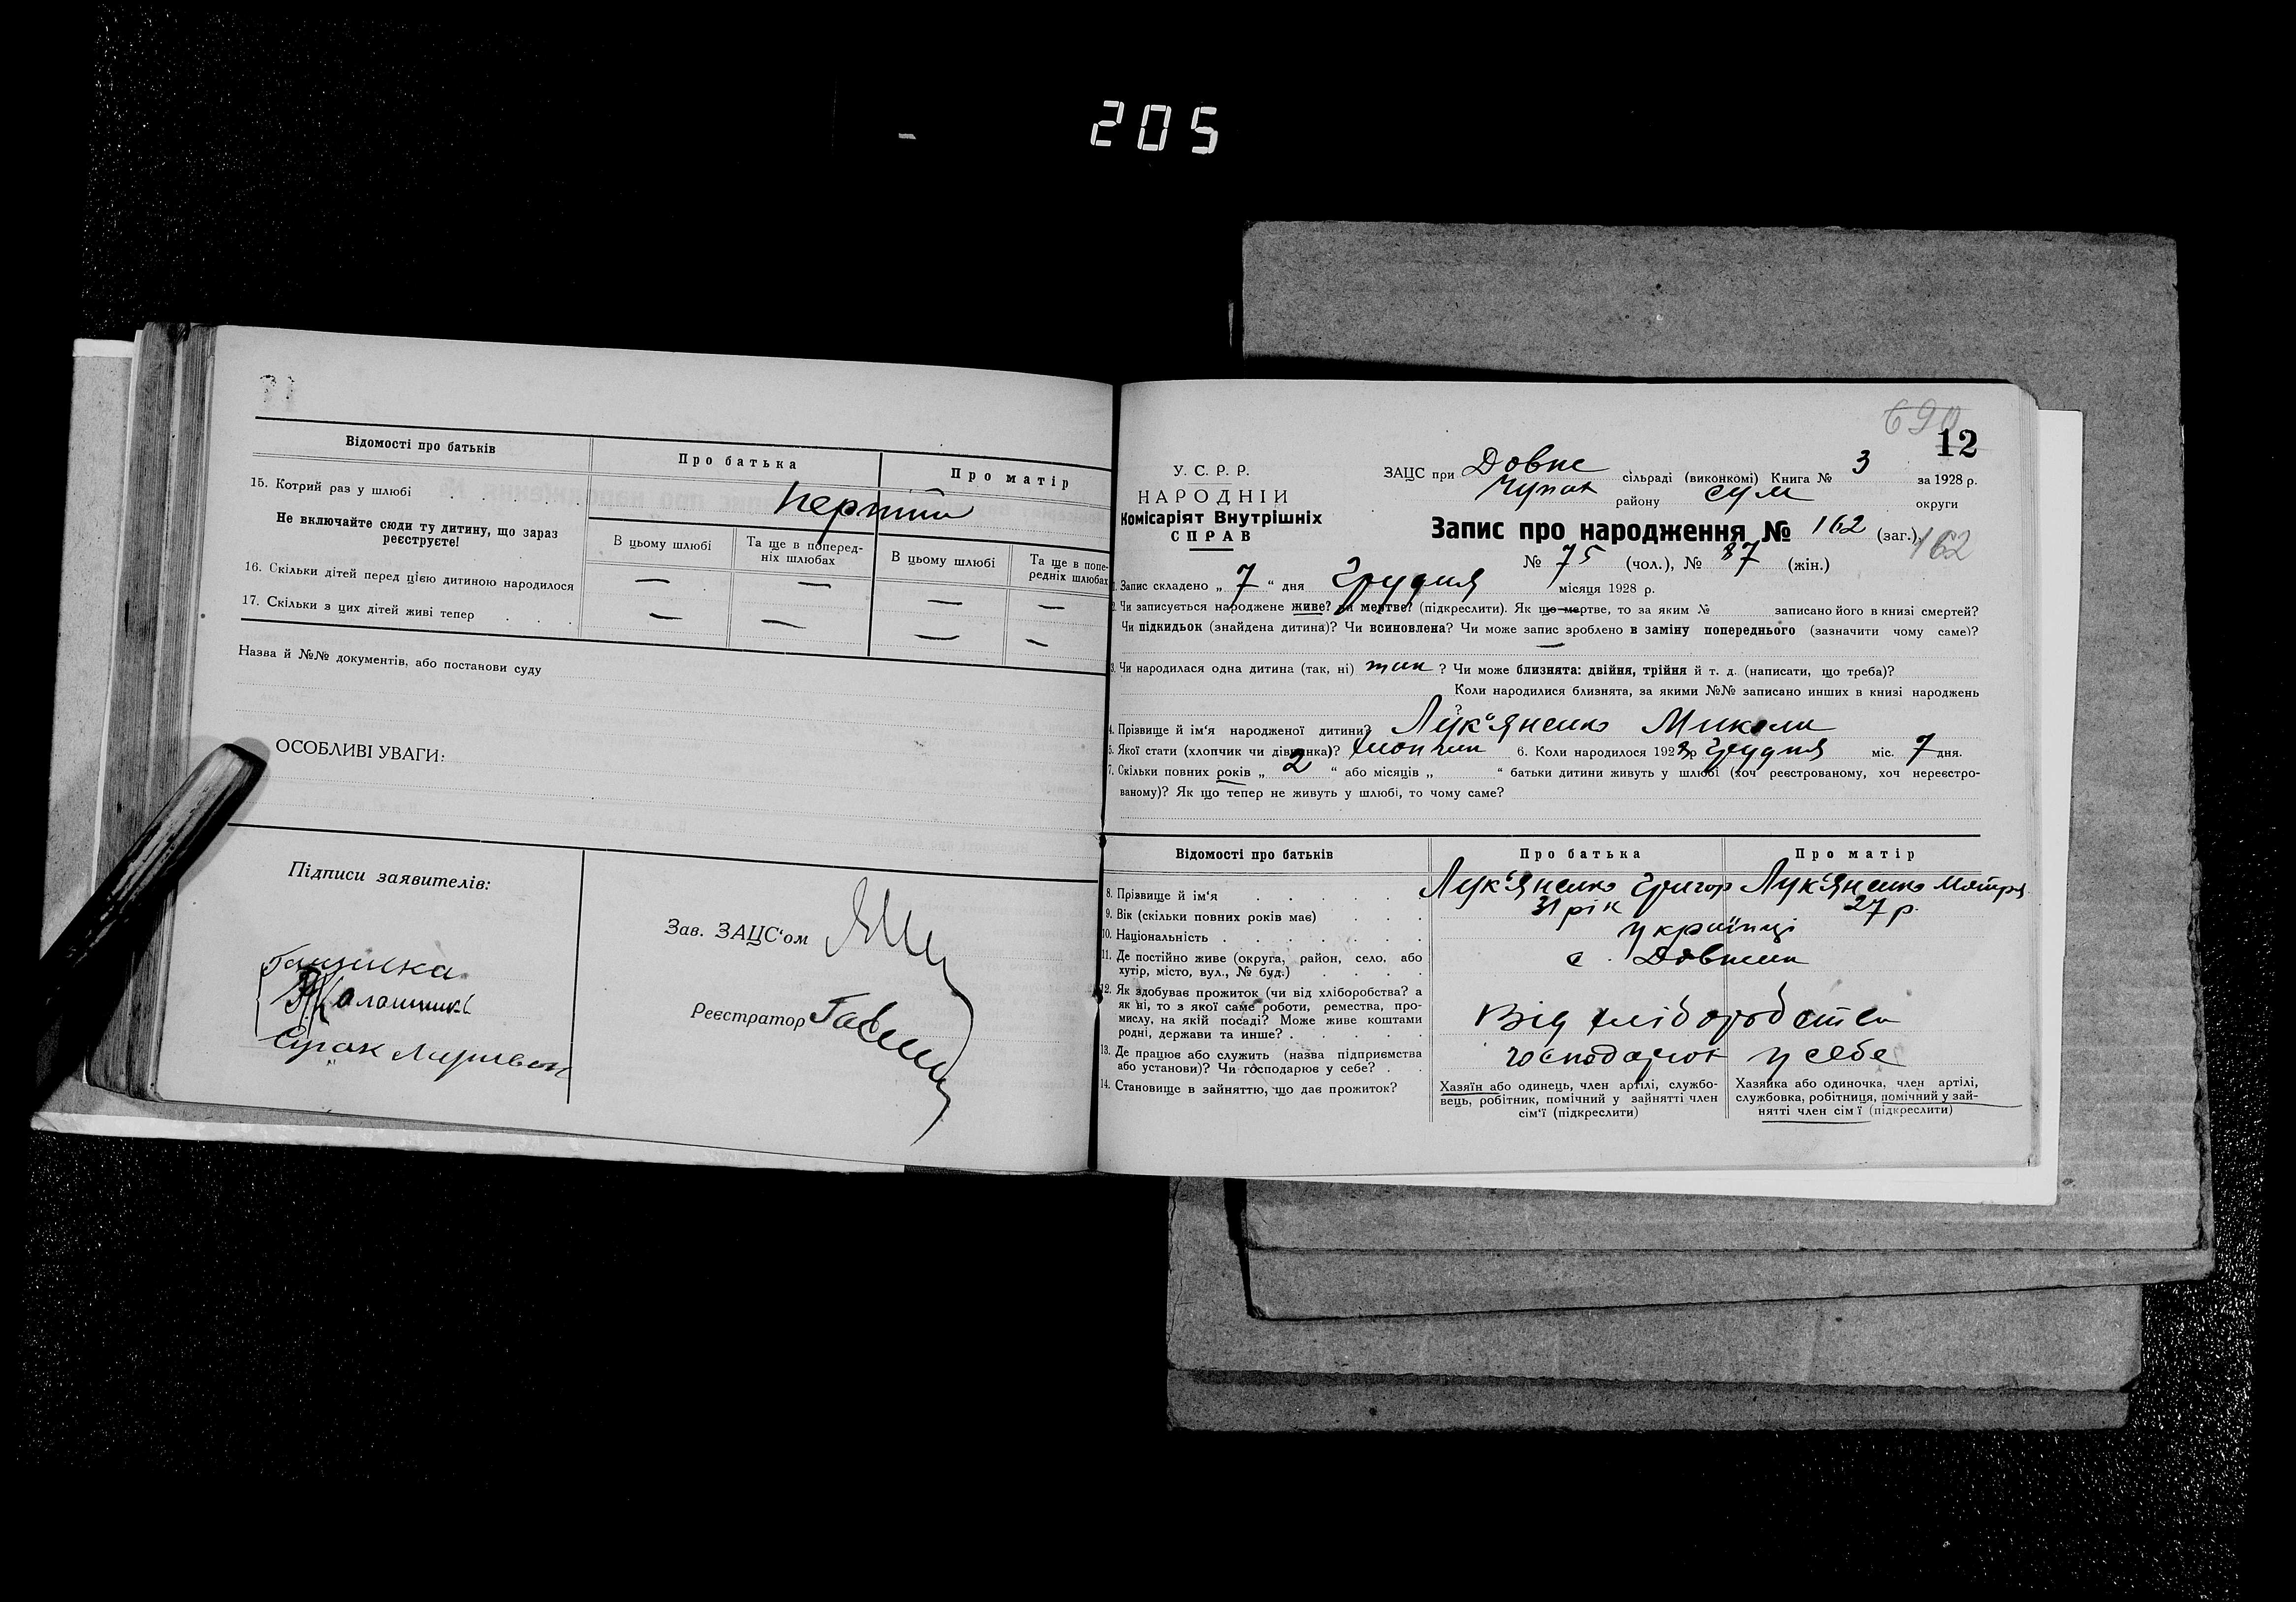 205
Відомості про батьків
Про батька
Про матір
15. Котрий раз у шлюбі
перший
Не включайте сюди ту дитину, що зараз
реєструєте!
В цьому шлюбі
Та ще в поперед-
ніх шлюбах
В цьому шлюбі
Та ще в попе-
редніх шлюбах
16. Скільки дітей перед цією дитиною народилося — — — —
17. Скільки з цих дітей живі тепер — — — —
Назва й №№ документів, або постанови суду
ОСОБЛИВІ УВАГИ:
Підписи заявителів:
Зав. ЗАЦС'ом
Реєстратор
690
12
У. С. Р. Р.
НАРОДНІЙ
Комісаріят Внутрішніх
СПРАВ
ЗАЦС при Довже сільраді (виконкомі) Книга № 3 за 1928 р.
Чупах району Сум округи
Запис про народження № 162 (заг.),
162
№ 75 (чол.), № 87 (жін.)
1. Запис складено „ 7 “ дня Грудня місяця 1928 р.
2. Чи записується народжене живе? чи мертве? (підкреслити). Як що мертве, то за яким № записано його в книзі смертей?
Чи підкидьок (знайдена дитина)? Чи всиновлена? Чи може запис зроблено в заміну попереднього (зазначити чому саме)?
—
3. Чи народилася одна дитина (так, ні) так ? Чи може близнята: двійня, трійня й т. д. (написати, що треба)?
Коли народилися близнята, за якими №№ записано инших в книзі народжень
?
4. Прізвище й ім'я народженої дитини? Лук'яненко Микола
5. Якої стати (хлопчик чи дівчинка)? хлопчик 6. Коли народилося 1928 р Грудня міс. 7 дня.
7. Скільки повних років „ 2 “ або місяців „ “ батьки дитини живуть у шлюбі (хоч реєстрованому, хоч нереєстро-
ваному)? Як що тепер не живуть у шлюбі, то чому саме?
Відомості про батьків
Про батька
Про матір
8. Прізвище й ім'я Лук'яненко Григор Лук'яненко Мотря
9. Вік (скільки повних років має) 31 рік 27 р.
10. Національність українці
11. Де постійно живе (округа, район, село, або
хутір, місто, вул., № буд.)
с.
12. Як здобуває прожиток (чи від хліборобства? а
як ні, то з якої саме роботи, ремества, про-
мислу, на якій посаді? Може живе коштами
родні, держави та инше?
Від хліборобства
13. Де працює або служить (назва підприємства
або установи)? Чи господарює у себе?
господарює у себе
14. Становище в зайняттю, що дає прожиток?
Хазяїн або одинець, член артілі, службо-
вець, робітник, помічний у зайнятті член
сім'ї (підкреслити)
Хазяйка або одиночка, член артілі,
службовка, робітниця, помічний у зай-
нятті член сім'ї (підкреслити)